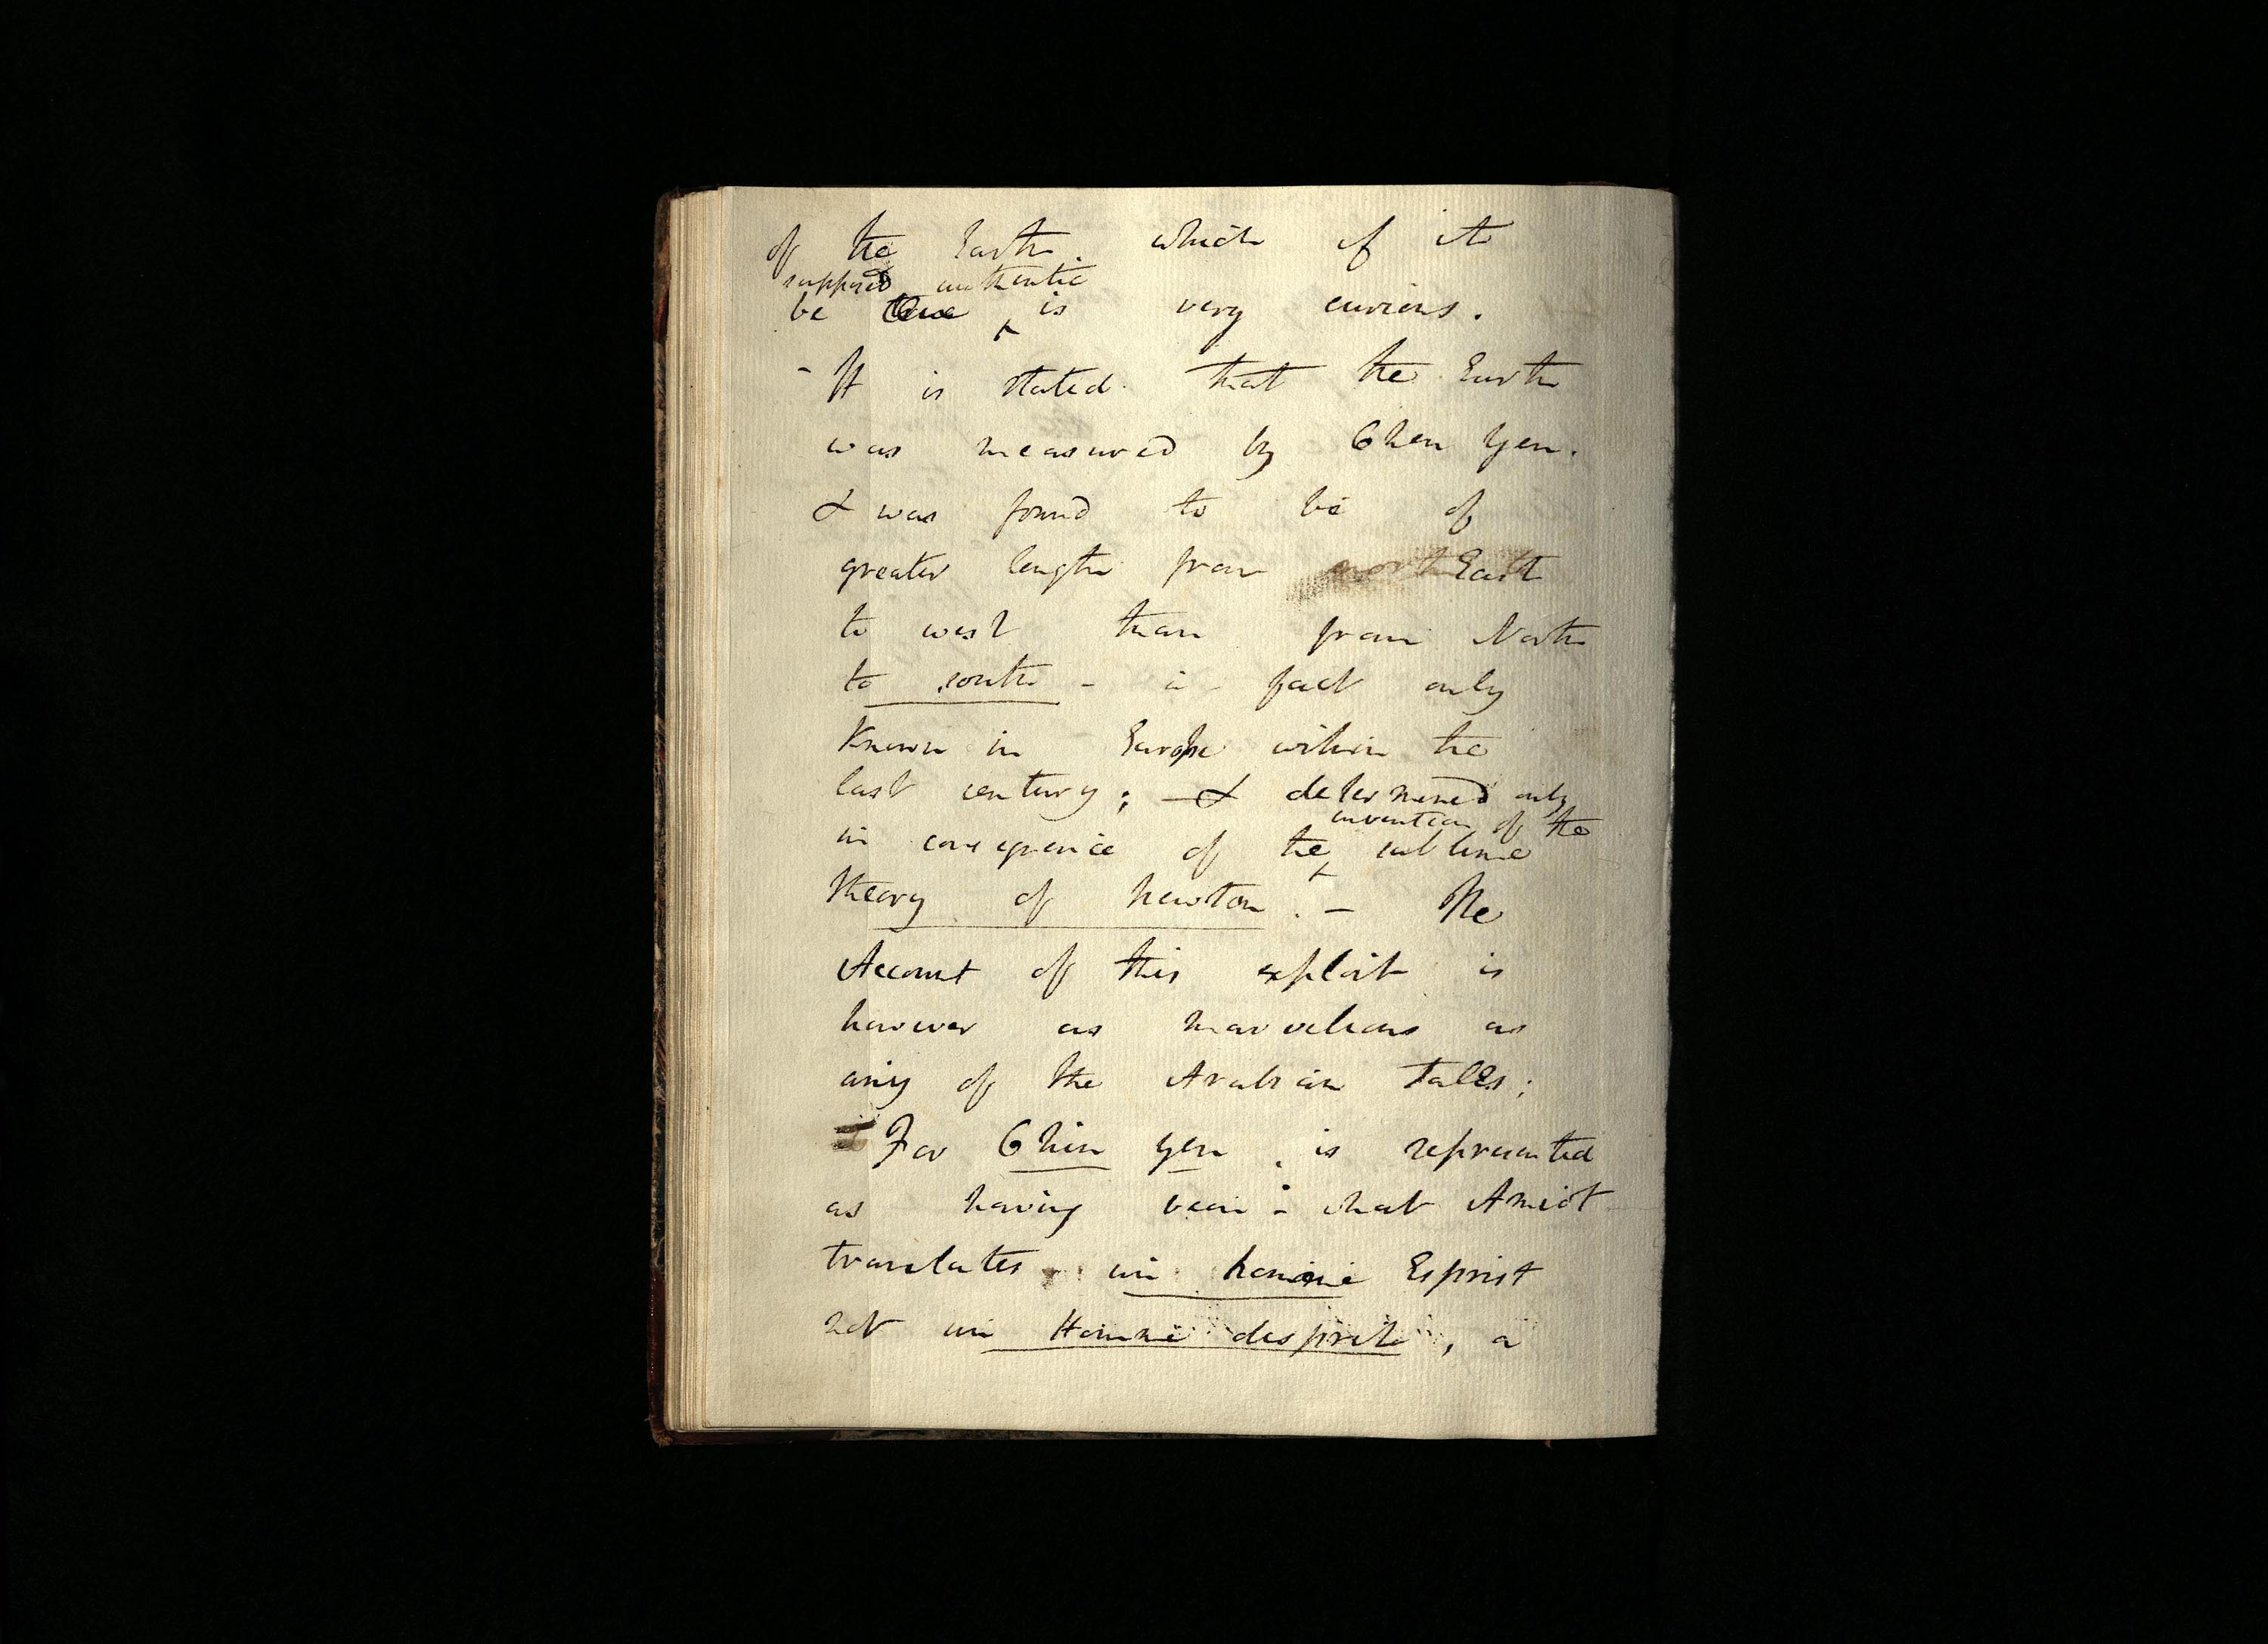 of the Earth. which if it
supposed authentic
be true is very curious.
- It is stated that the Earth
was measured by Chen Yen.
& was found to be of
greater length from north East
to west than from North
to south - a fact only
Known in Europe within the
last century; - & determined only
invention of the
in consequence of the sublime
theory of newton. - The
Account of this exploit is
however as marvellous as
any of the Arabian Tales;
For Chin yen is represented
as having been - what Amiot
translates un homme Esprit
not un Homme desprit, a